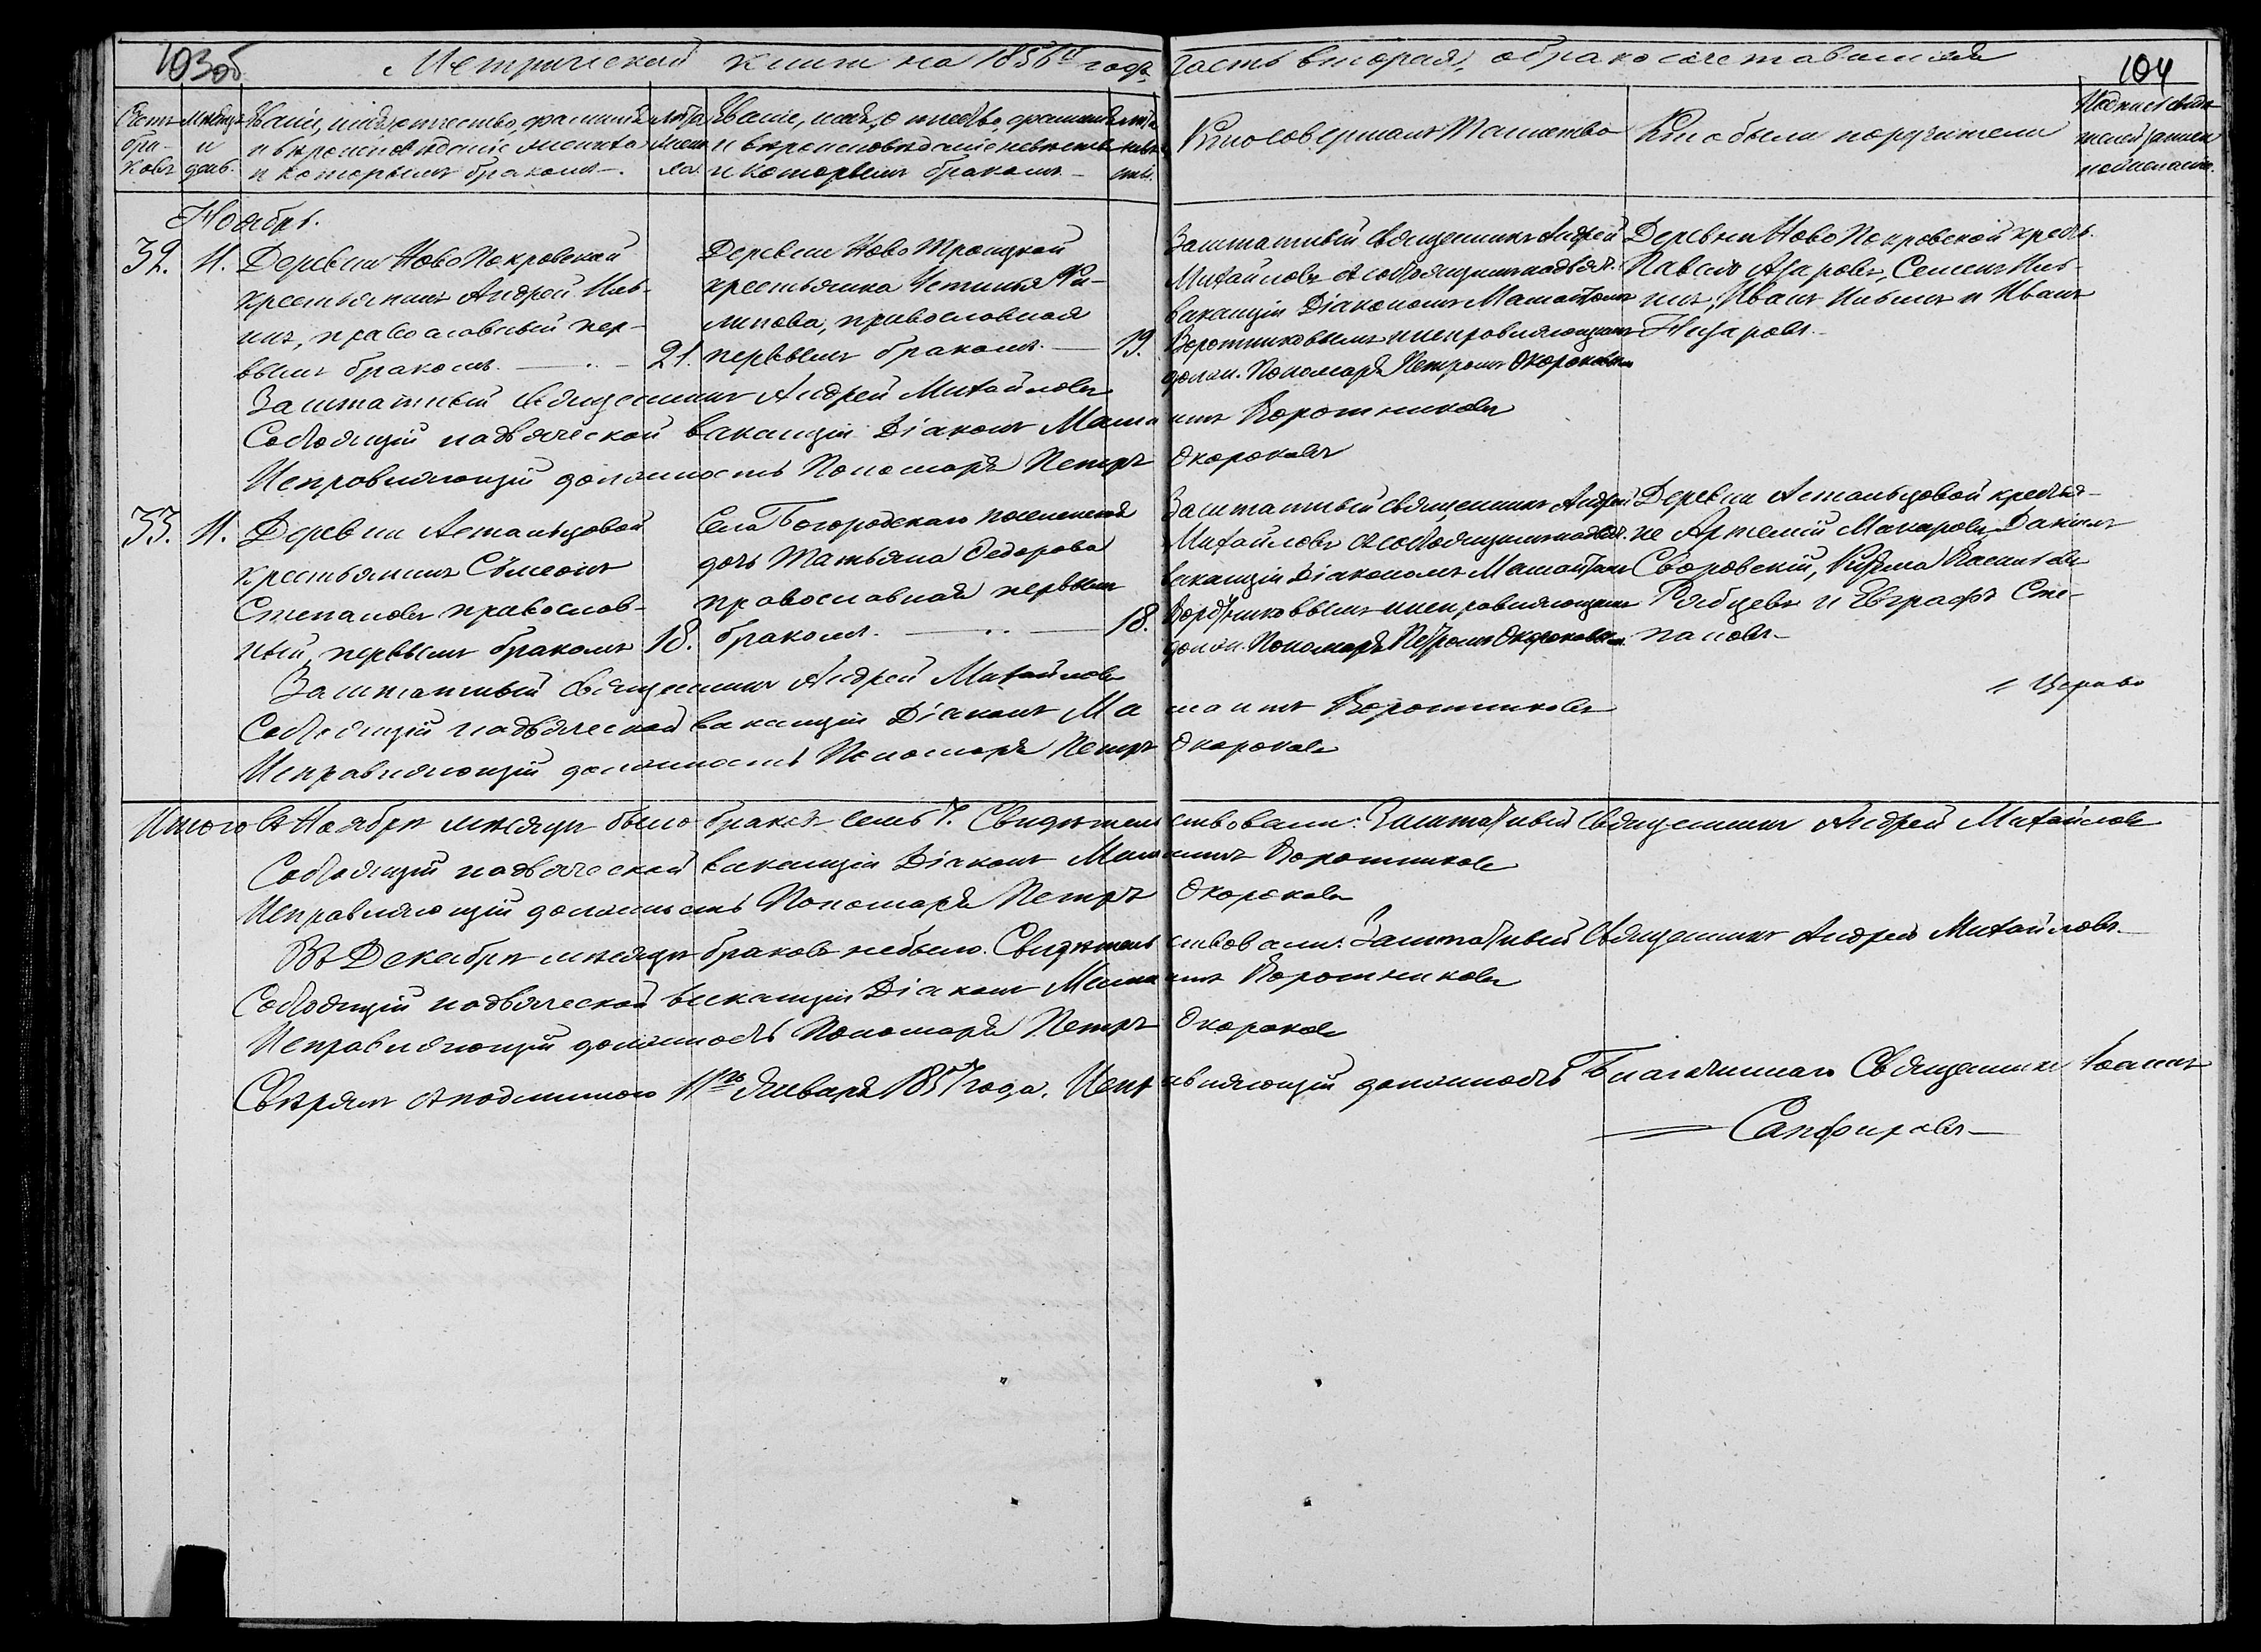 103об
Метрической книги на 1856й годъ, часть вторая, о бракосочетавшихся
104
Счетъ браковъ
Мѣсяцъ и день.
Званіе, имя, отчество, фамилія и вѣроисповѣданіе жениха и которымъ бракомъ.
Лѣта жениха.
Званіе, имя, отчество, фамилія и вѣроисповѣданіе невѣсты и которымъ бракомъ
Лѣта невѣсты.
Кто совершалъ Таинство
Кто были поручители
Ноябрь.
32. 11. Деревни НовоПокровской
крестьянинъ Андрей
православный пер-
вымъ бракомъ. 21.
Деревни НовоТроицкой
крестьянка Устинья Фи-
липова, православная
первымъ бракомъ. 19.
Заштатный Священникъ Андрей
Михайловъ съ состоящимъ на дьяч.
ваканціи Діакономъ
Воротниковымъ и исправляющимъ
долж. Пономаря Петромъ Окороковым
Деревни НовоПокровской крест.
Павелъ Азаровъ, Семенъ
Иванъ и Иванъ
Назаровъ.
Заштатный Священникъ Андрей Михайловъ
Состоящій на дьяческой ваканціи Діаконъ Воротниковъ
Исправляющій должность Пономаря Петръ Окороковъ
33. 11. Деревни Астанцовой
крестьянинъ Сѵмеонъ
Степановъ православ-
ный, первымъ бракомъ 18.
Села Богородскаго поселенца
дочь Татьяна Федорова
православная первымъ
бракомъ. 18.
Заштатный Священникъ Андрей
Михайловъ съ состоящимъ на дьяч.
ваканціи Діакономъ
Воротниковымъ и исправляющимъ
долж. Пономаря Петромъ Окороковым.
Деревни Астанцовой крестья-
не Артемій Макаровъ,
Кузьма
Рябцевъ и Евграфъ Сте-
пановъ
Заштатный Священникъ Андрей Михайловъ
Состоящій на дьяческой ваканціи Діаконъ Воротниковъ
Исправляющій должность Пономаря Петръ Окороковъ
Итого въ Ноябрѣ мѣсяцѣ было браковъ семь 7. Свидѣтельствовали: Заштатный Священникъ Андрей Михайловъ
Состоящій на дьяческой ваканціи Діаконъ Воротниковъ
Исправляющій должность Пономаря Петръ Окороковъ
Въ Декабрѣ мѣсяцѣ браковъ небыло. Свидѣтельствовали: Заштатный Священникъ Андрей Михайловъ.
Состоящій на дьяческой ваканціи Діаконъ Воротниковъ
Исправляющій должность Пономаря Петръ Окороковъ
Свѣрялъ съ подлинною 11го Января 1857 года. Исправляющій должность Благочиннаго Священникъ Іоаннъ
Сапфировъ